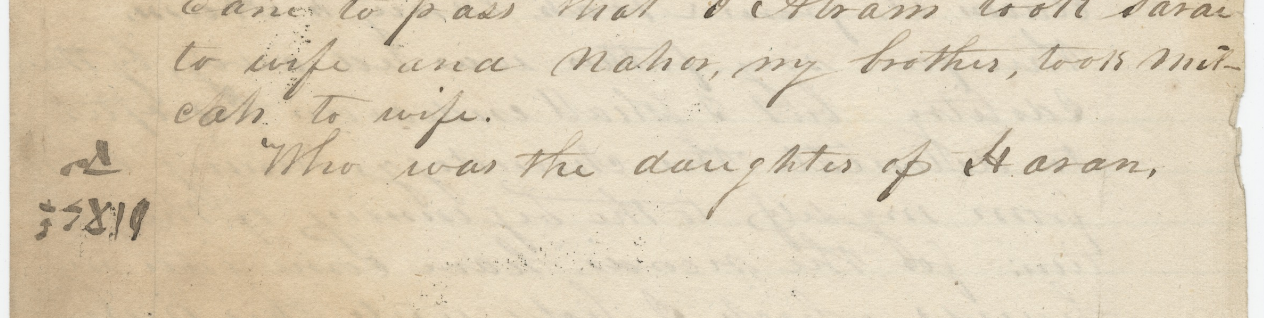 came to pass that I Abram took Sarai
to wife and Nahor, my brother, took Mil-
cah to wife.
Who was the daughter of Haran,